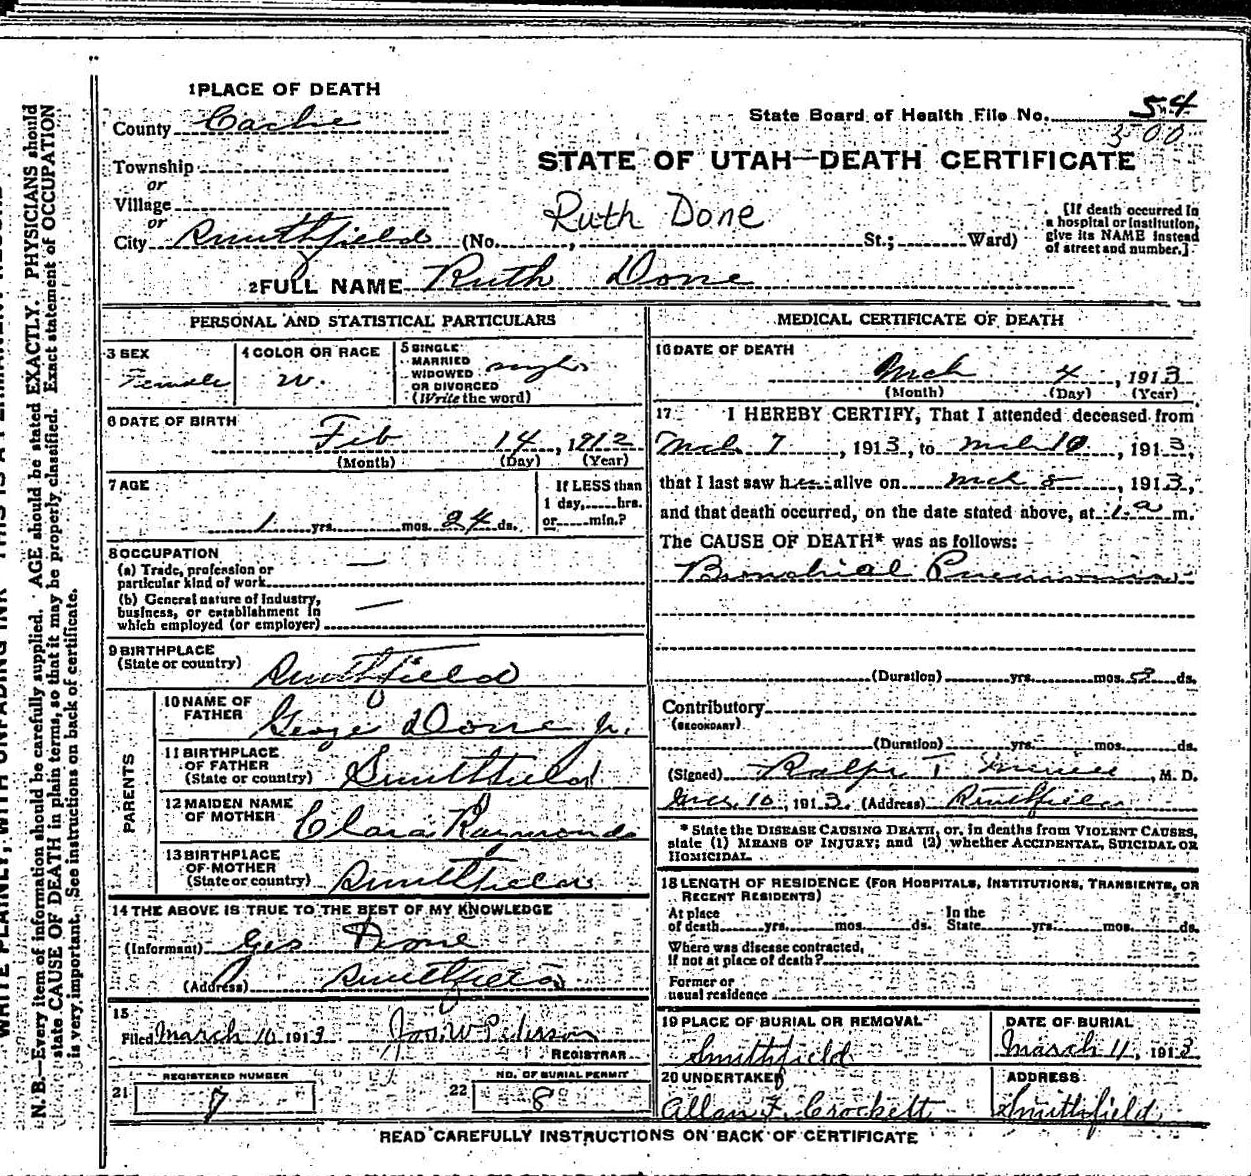 1 PLACE OF DEATH
County Cache
State Board of Health File No. 54
300
Township
or
Village
or
City Smithfield (No. , St.; Ward)
STATE OF UTAH—DEATH CERTIFICATE
Ruth Done
[If death occurred in
a hospital or institution,
give its NAME instead
of street and number.]
2 FULL NAME Ruth Done
PERSONAL AND STATISTICAL PARTICULARS
3 SEX
Female
4 COLOR OR RACE
W.
5 SINGLE
MARRIED
WIDOWED
OR DIVORCED
(Write the word)
single
6 DATE OF BIRTH
Feb 14, 1912
(Month) (Day) (Year)
7 AGE
1 yrs. mos. 24 ds.
If LESS than
1 day, hrs.
or min.?
8 OCCUPATION
(a) Trade, profession or
particular kind of work —
(b) General nature of industry,
business, or establishment in
which employed (or employer) —
9 BIRTHPLACE
(State or country) Smithfield
PARENTS
10 NAME OF
FATHER
George Done Jr.
11 BIRTHPLACE
OF FATHER
(State or country) Smithfield
12 MAIDEN NAME
OF MOTHER
Clara Raymond
13 BIRTHPLACE
OF MOTHER
(State or country) Smithfield
14 THE ABOVE IS TRUE TO THE BEST OF MY KNOWLEDGE
(Informant) Geo Done
(Address) Smithfield
15
Filed March 10 1913 Jas. W Pederson
REGISTRAR
REGISTERED NUMBER
21 7
NO. OF BURIAL PERMIT
22 8
MEDICAL CERTIFICATE OF DEATH
16 DATE OF DEATH
Mch 4, 1913
(Month) (Day) (Year)
17 I HEREBY CERTIFY, That I attended deceased from
Mch 7, 1913, to Mch 10, 1913,
that I last saw her alive on Mch 8, 1913,
and that death occurred, on the date stated above, at 1 a m.
The CAUSE OF DEATH* was as follows:
Bronchial Pneumonia
(Duration) yrs. mos. 3 ds.
Contributory
(SECONDARY)
(Duration) yrs. mos. ds.
(Signed) Ralph T. Merrill, M. D.
Mch 10, 1913. (Address) Smithfield
* State the DISEASE CAUSING DEATH, or, in deaths from VIOLENT CAUSES,
state (1) MEANS OF INJURY; and (2) whether ACCIDENTAL, SUICIDAL OR
HOMICIDAL.
18 LENGTH OF RESIDENCE (FOR HOSPITALS, INSTITUTIONS, TRANSIENTS, OR
RECENT RESIDENTS)
At place
of death yrs. mos. ds.
In the
State yrs. mos. ds.
Where was disease contracted,
If not at place of death?
Former or
usual residence
19 PLACE OF BURIAL OR REMOVAL
Smithfield
DATE OF BURIAL
March 11, 1913
20 UNDERTAKER
Allan F. Crockett
ADDRESS
Smithfield
READ CAREFULLY INSTRUCTIONS ON BACK OF CERTIFICATE
WRITE PLAINLY, WITH UNFADING INK THIS IS A PERMANENT RECORD
N. B.—Every item of information should be carefully supplied. AGE should be stated EXACTLY. PHYSICIANS should
state CAUSE OF DEATH in plain terms, so that it may be properly classified. Exact statement of OCCUPATION
is very important. See instructions on back of certificate.